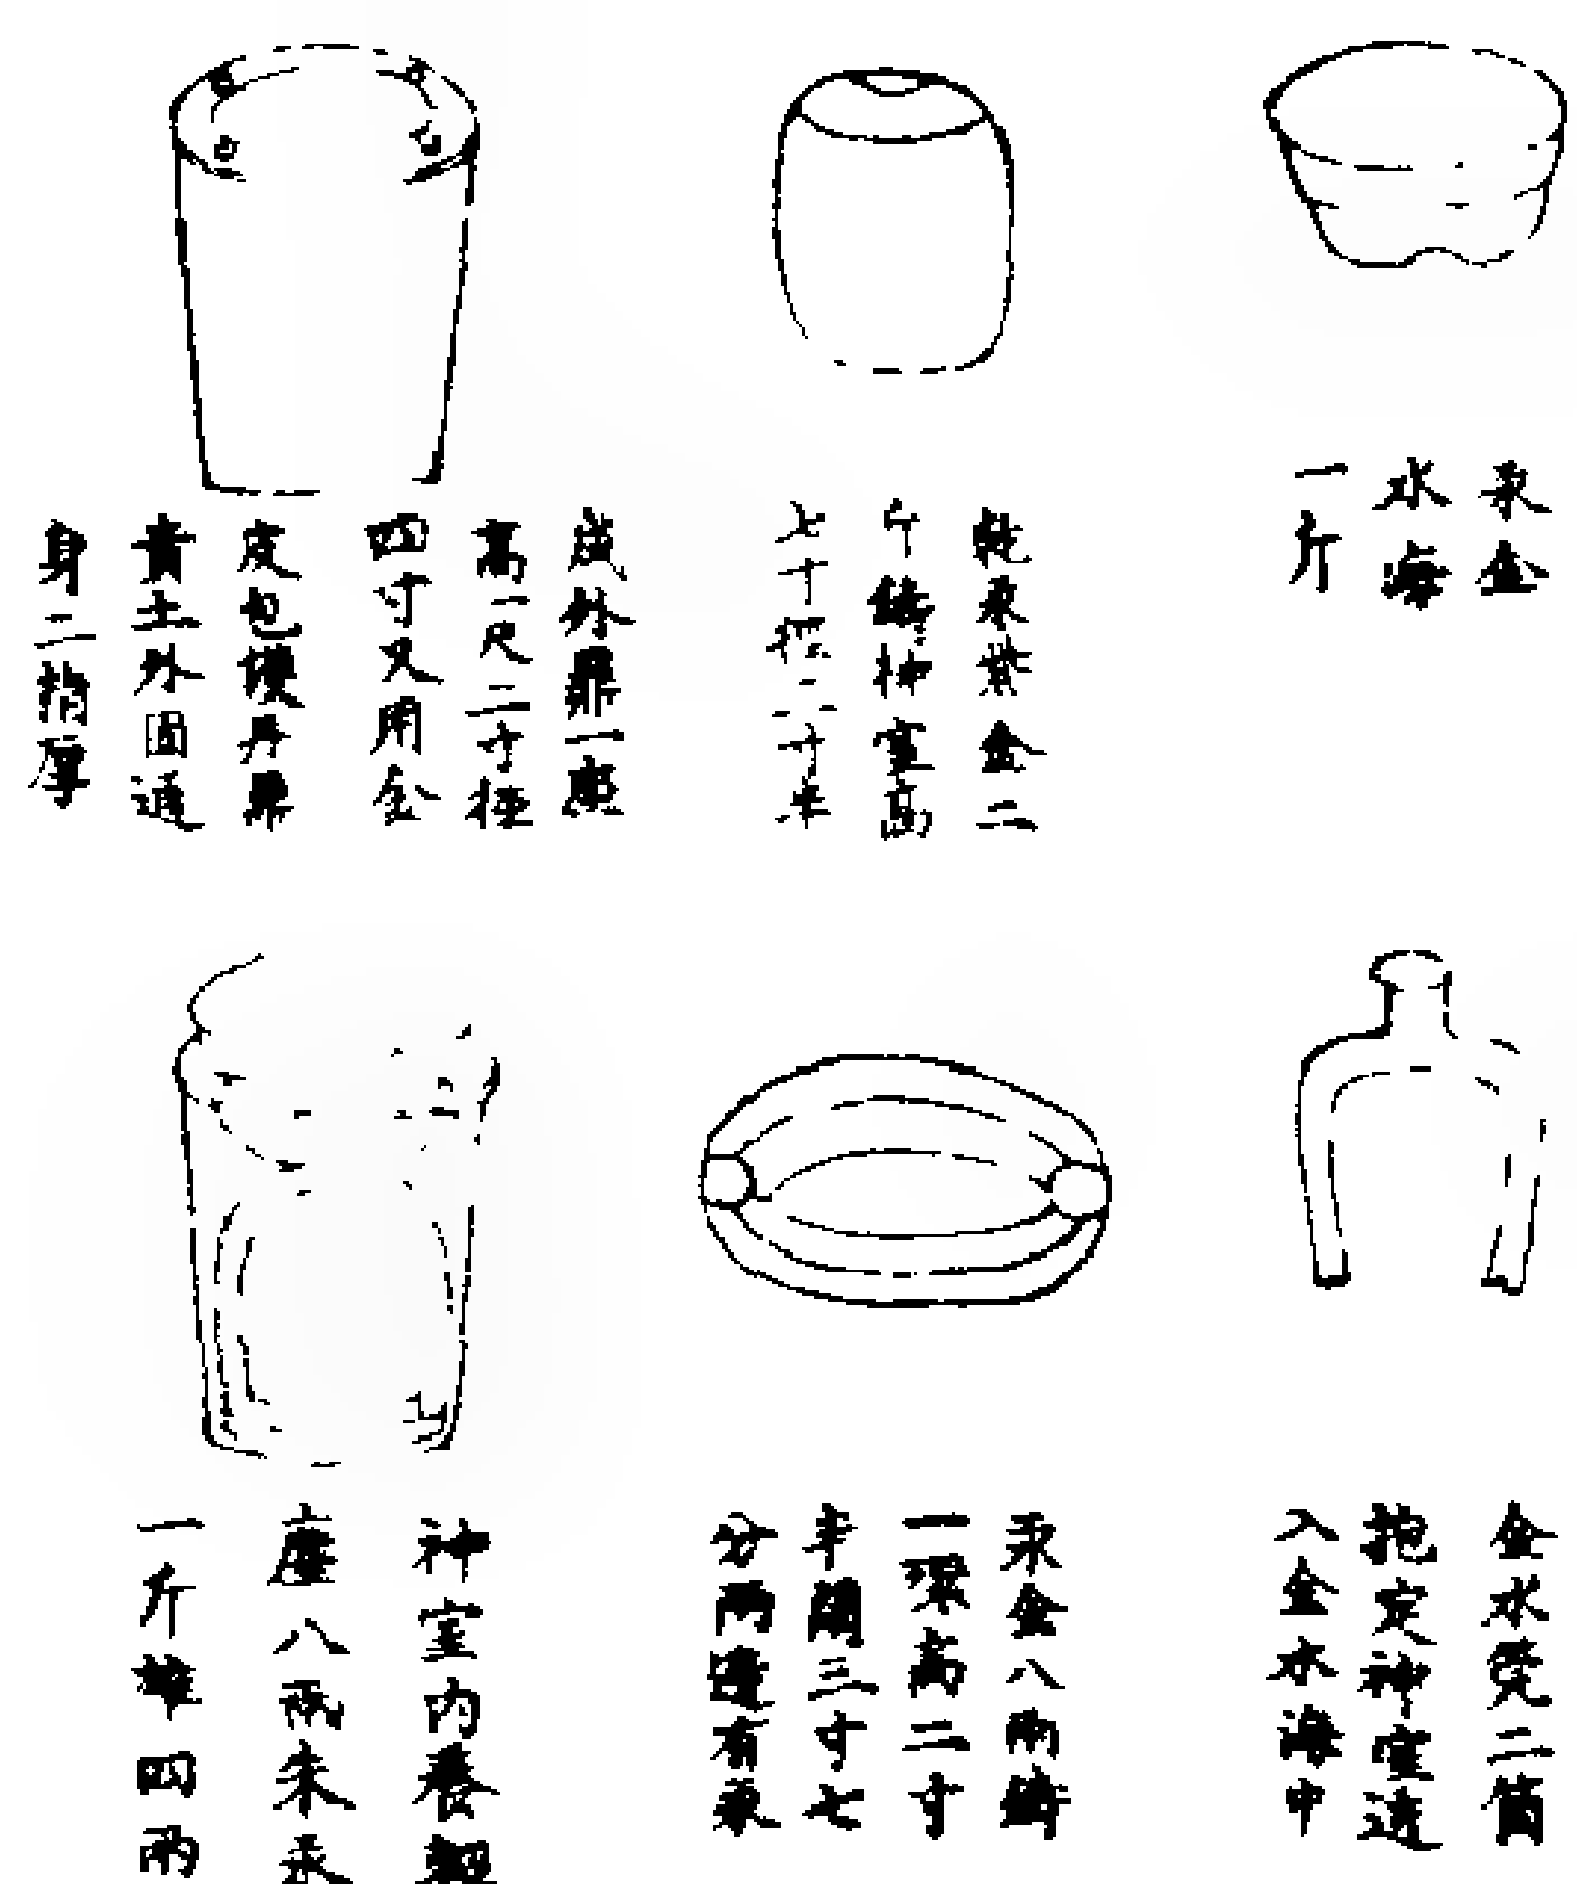 汞金
水海
一斤
乾汞紫金二
斤鑄神室高
七寸徑二寸半
成外鼎一座
高一尺二寸徑
四寸又用金
皮包護丹鼎
黃土外固通
身二指厚
金水筦二箇
抱定神室透
入金水海中
汞金八兩鑄
一環高二寸
半闊三寸七
分兩邊有汞
神室內養
塵八兩朱汞
一斤雄四兩